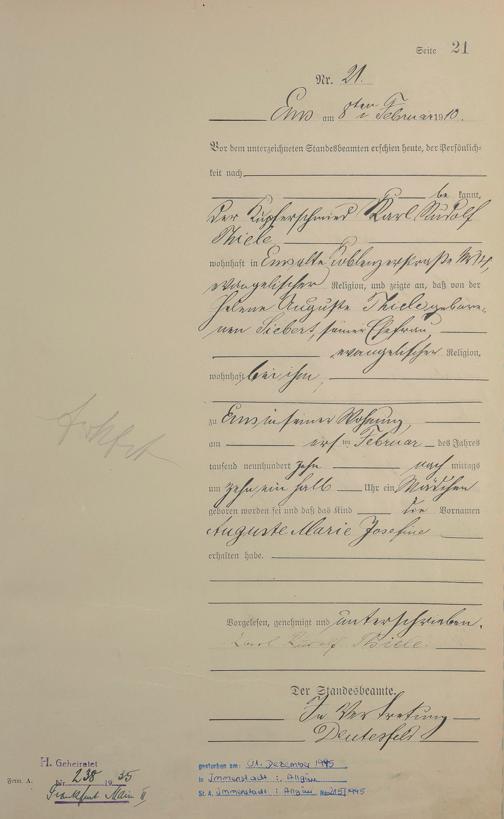 Seite 21
Nr. 21.
Ems am 8ten Februar 1910.
Vor dem unterzeichneten Standesbeamten erschien heute, der Persönlich-
keit nach
be kannt,
der Kupferschmied Karl Rudolf
Thiele
wohnhaft in Ems alte Coblenzerstraße
evangelischer Religion, und zeigte an, daß von der
Helene Auguste Thiele gebore-
nen Siebert, seiner Ehefrau
evangelischer Religion,
wohnhaft bei ihm,
zu Ems in seiner Wohnung
am Februar des Jahres
tausend neunhundert zehn nach mittags
um zehn ein halb Uhr ein Mädchen
geboren worden sei und daß das Kind die Vornamen
Auguste Marie Josefine
erhalten habe.
Vorgelesen, genehmigt und unterschrieben.
Karl Rudolf Thiele.
Der Standesbeamte.
In Vertretung
H. Geheiratet
Nr. 238 1935
Frankfurt Main
Form. A.
gestorben am: 01. Dezember 1995
in Immenstadt i. Allgäu
St. A. Immenstadt i. Allgäu